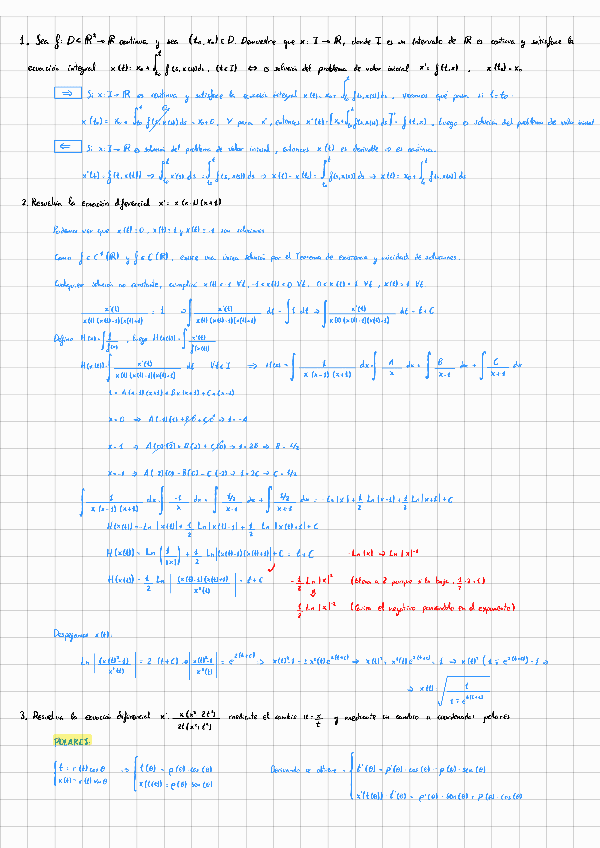 1. Sea f: D⊂ℝ²→ℝ continua y sea (t₀,x₀)∈D. Demuestre que x: I→ℝ, donde I es un intervalo de ℝ es continua y satisface la
ecuación integral x(t)= x₀+∫ₜ₀ᵗ f(s,x(s))ds, (t∈I) ⇔ es solución del problema de valor inicial x'= f(t,x), x(t₀)=x₀
⇒ Si x: I→ℝ es continua y satisface la ecuación integral x(t)=x₀+∫ₜ₀ᵗ f(s,x(s))ds, veamos qué pasa si t=t₀
x(t₀)= x₀+∫ₜ₀ᵗ⁰ f(s,x(s))ds = x₀+0, Y para x', entonces x'(t)=[x₀+∫ₜ₀ᵗ f(s,x(s))ds]'= f(t,x), luego es solución del problema de valor inicial
⇐ Si x: I→ℝ es solución del problema de valor inicial, entonces x(t) es derivable ⇒ es continua.
x'(t)= f(t,x(t)) ⇒ ∫ₜ₀ᵗ x'(s)ds = ∫ₜ₀ᵗ f(s,x(s))ds ⇒ x(t)-x(t₀)= ∫ₜ₀ᵗ f(s,x(s))ds ⇒ x(t)= x₀+∫ₜ₀ᵗ f(s,x(s))ds
2. Resuelva la ecuación diferencial x'= x(x-1)(x+1)
Podemos ver que x(t)=0, x(t)=1 y x(t)=-1 son soluciones
Como f∈C¹(ℝ) y f∈C(ℝ), existe una única solución por el Teorema de existencia y unicidad de soluciones.
Cualquier solución no constante, cumplirá x(t)<-1 ∀t, -1<x(t)<0 ∀t, 0<x(t)<1 ∀t, x(t)>1 ∀t
x'(t)/(x(t)(x(t)-1)(x(t)+1)) = 1 ⇒ ∫ x'(t)/(x(t)(x(t)-1)(x(t)+1)) dt = ∫1 dt ⇒ ∫ x'(t)/(x(t)(x(t)-1)(x(t)+1)) dt = t+C
Defino H(x)=∫ 1/f(x), luego H(x(t))=∫ x'(t)/f(x(t))
H(x(t))=∫ x'(t)/(x(t)(x(t)-1)(x(t)+1)) dt ∀t∈I ⇒ H(x)=∫ 1/(x(x-1)(x+1)) dx=∫ A/x dx+∫ B/(x-1) dx+∫ C/(x+1) dx
1= A(x-1)(x+1)+Bx(x+1)+Cx(x-1)
x=0 ⇒ A(-1)(1)+B·0+C·0 ⇒ 1=-A
x=1 ⇒ A(0)(2)+B(2)+C(0) ⇒ 1=2B ⇒ B=1/2
x=-1 ⇒ A(-2)(0)-B(0)-C(-2) ⇒ 1=2C ⇒ C=1/2
∫ 1/(x(x-1)(x+1)) dx=∫ -1/x dx+∫ 1/2/(x-1) dx+∫ 1/2/(x+1) dx = -Ln|x|+1/2 Ln|x-1|+1/2 Ln|x+1|+C
H(x(t))=-Ln|x(t)|+1/2 Ln|x(t)-1|+1/2 Ln|x(t)+1|+C
H(x(t))= Ln(1/|x|)+1/2 Ln|(x(t)-1)(x(t)+1)|+C = t+C -Ln|x| ⇒ Ln|x|⁻¹
H(x(t))= 1/2 Ln|(x(t)-1)(x(t)+1)/x²(t)| = t+C -1/2 Ln|x|² (Elevo a 2 porque si lo bajo, 1/2·2=1)
1/2 Ln|x|⁻² (Quito el negativo poniéndolo en el exponente)
Despejamos x(t).
Ln|(x(t)²-1)/x²(t)| = 2(t+C) ⇒ |(x(t)²-1)/x²(t)| = e^2(t+C) ⇒ x(t)²-1=±x²(t)e^2(t+C) ⇒ x(t)²∓x²(t)e^2(t+C)=1 ⇒ x(t)²(1∓e^2(t+C))=1 ⇒
⇒ x(t)=√(1/(1∓e^2(t+C)))
3. Resuelva la ecuación diferencial x'= x(x²-2t²)/2t(x²-t²) mediante el cambio u=x/t y mediante un cambio a coordenadas polares
POLARES:
{t=r(t)cosθ ⇒ {t(θ)=ρ(θ)·cos(θ) Derivando se obtiene = {t'(θ)=ρ'(θ)·cos(θ)-ρ(θ)·sen(θ)
{x(t)=r(t)senθ {x(t(θ))=ρ(θ)sen(θ) {x'(t(θ))·t'(θ)=ρ'(θ)·sen(θ)+ρ(θ)·cos(θ)